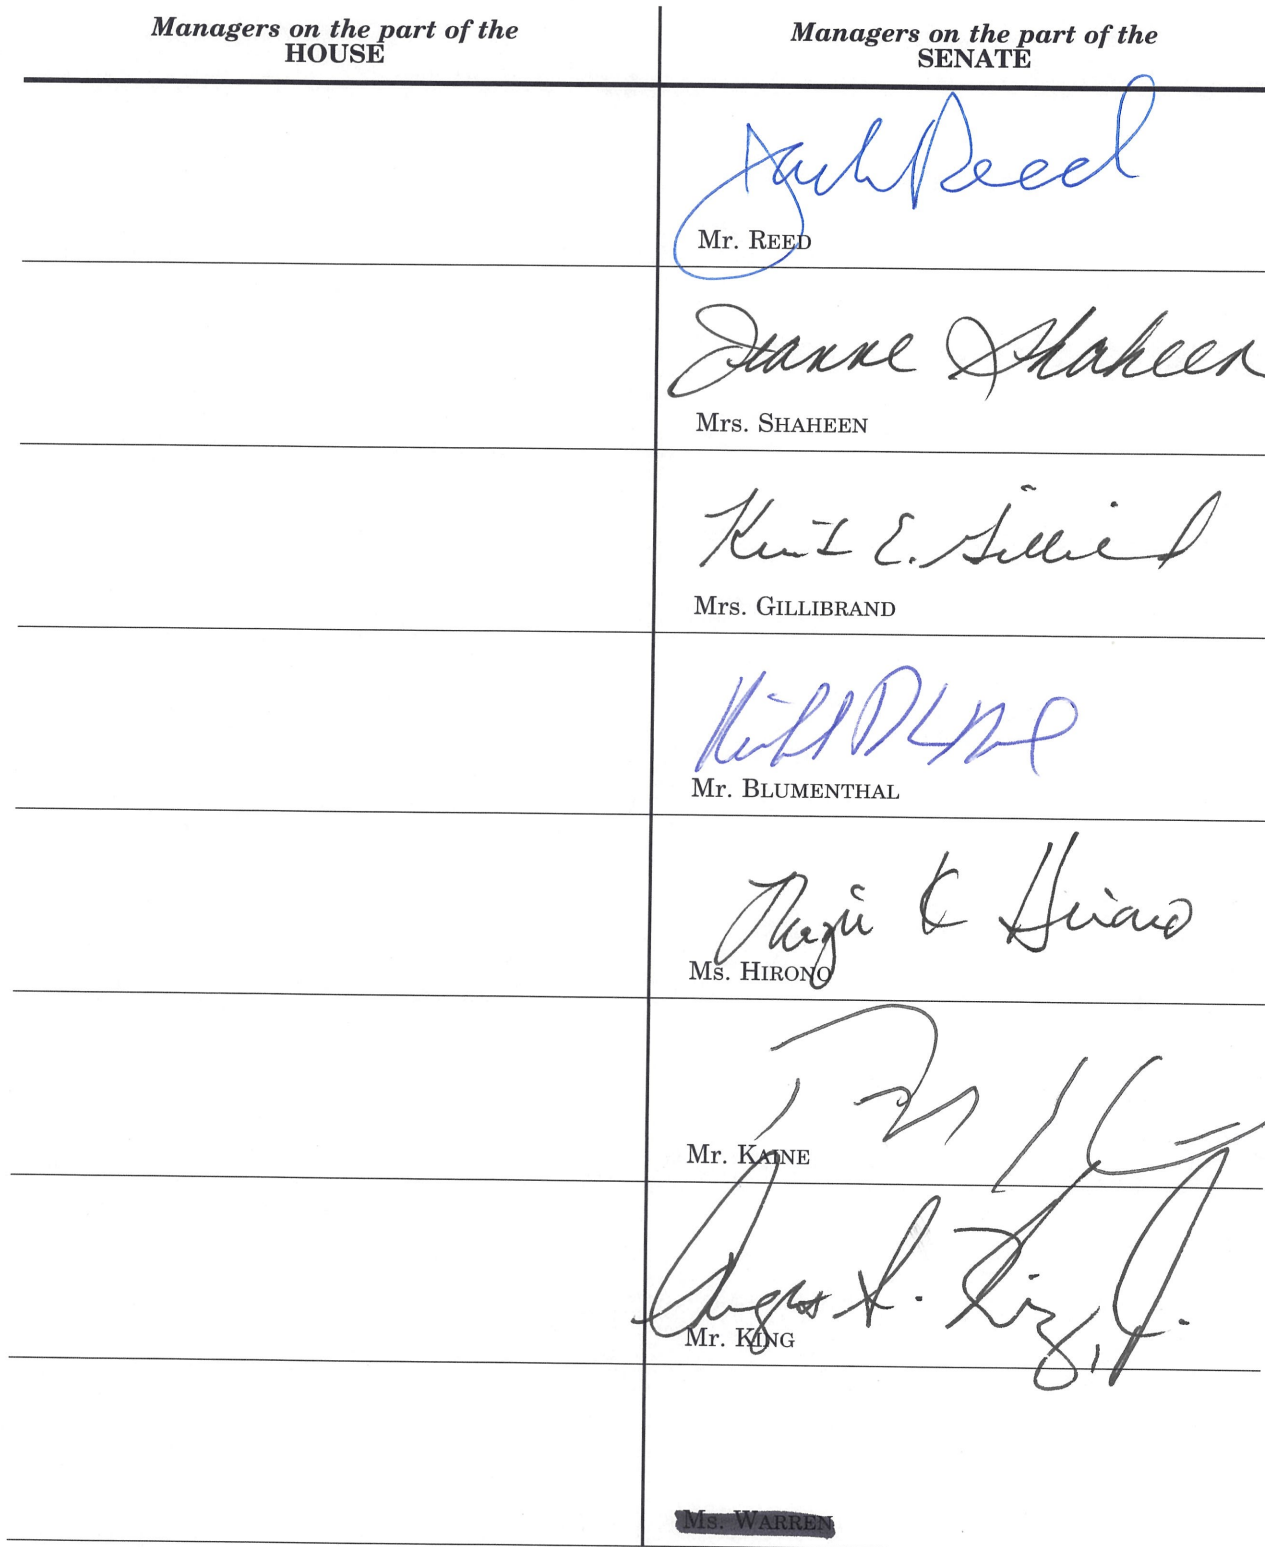 Managers on the part of the
HOUSE
Managers on the part of the
SENATE
Jack Reed
Mr. REED
Jeanne Shaheen
Mrs. SHAHEEN
E.
Mrs. GILLIBRAND
Mr. BLUMENTHAL
Mazie K Hirono
Ms. HIRONO
Mr. KAINE
Angus S. King, Jr.
Mr. KING
Ms. WARREN